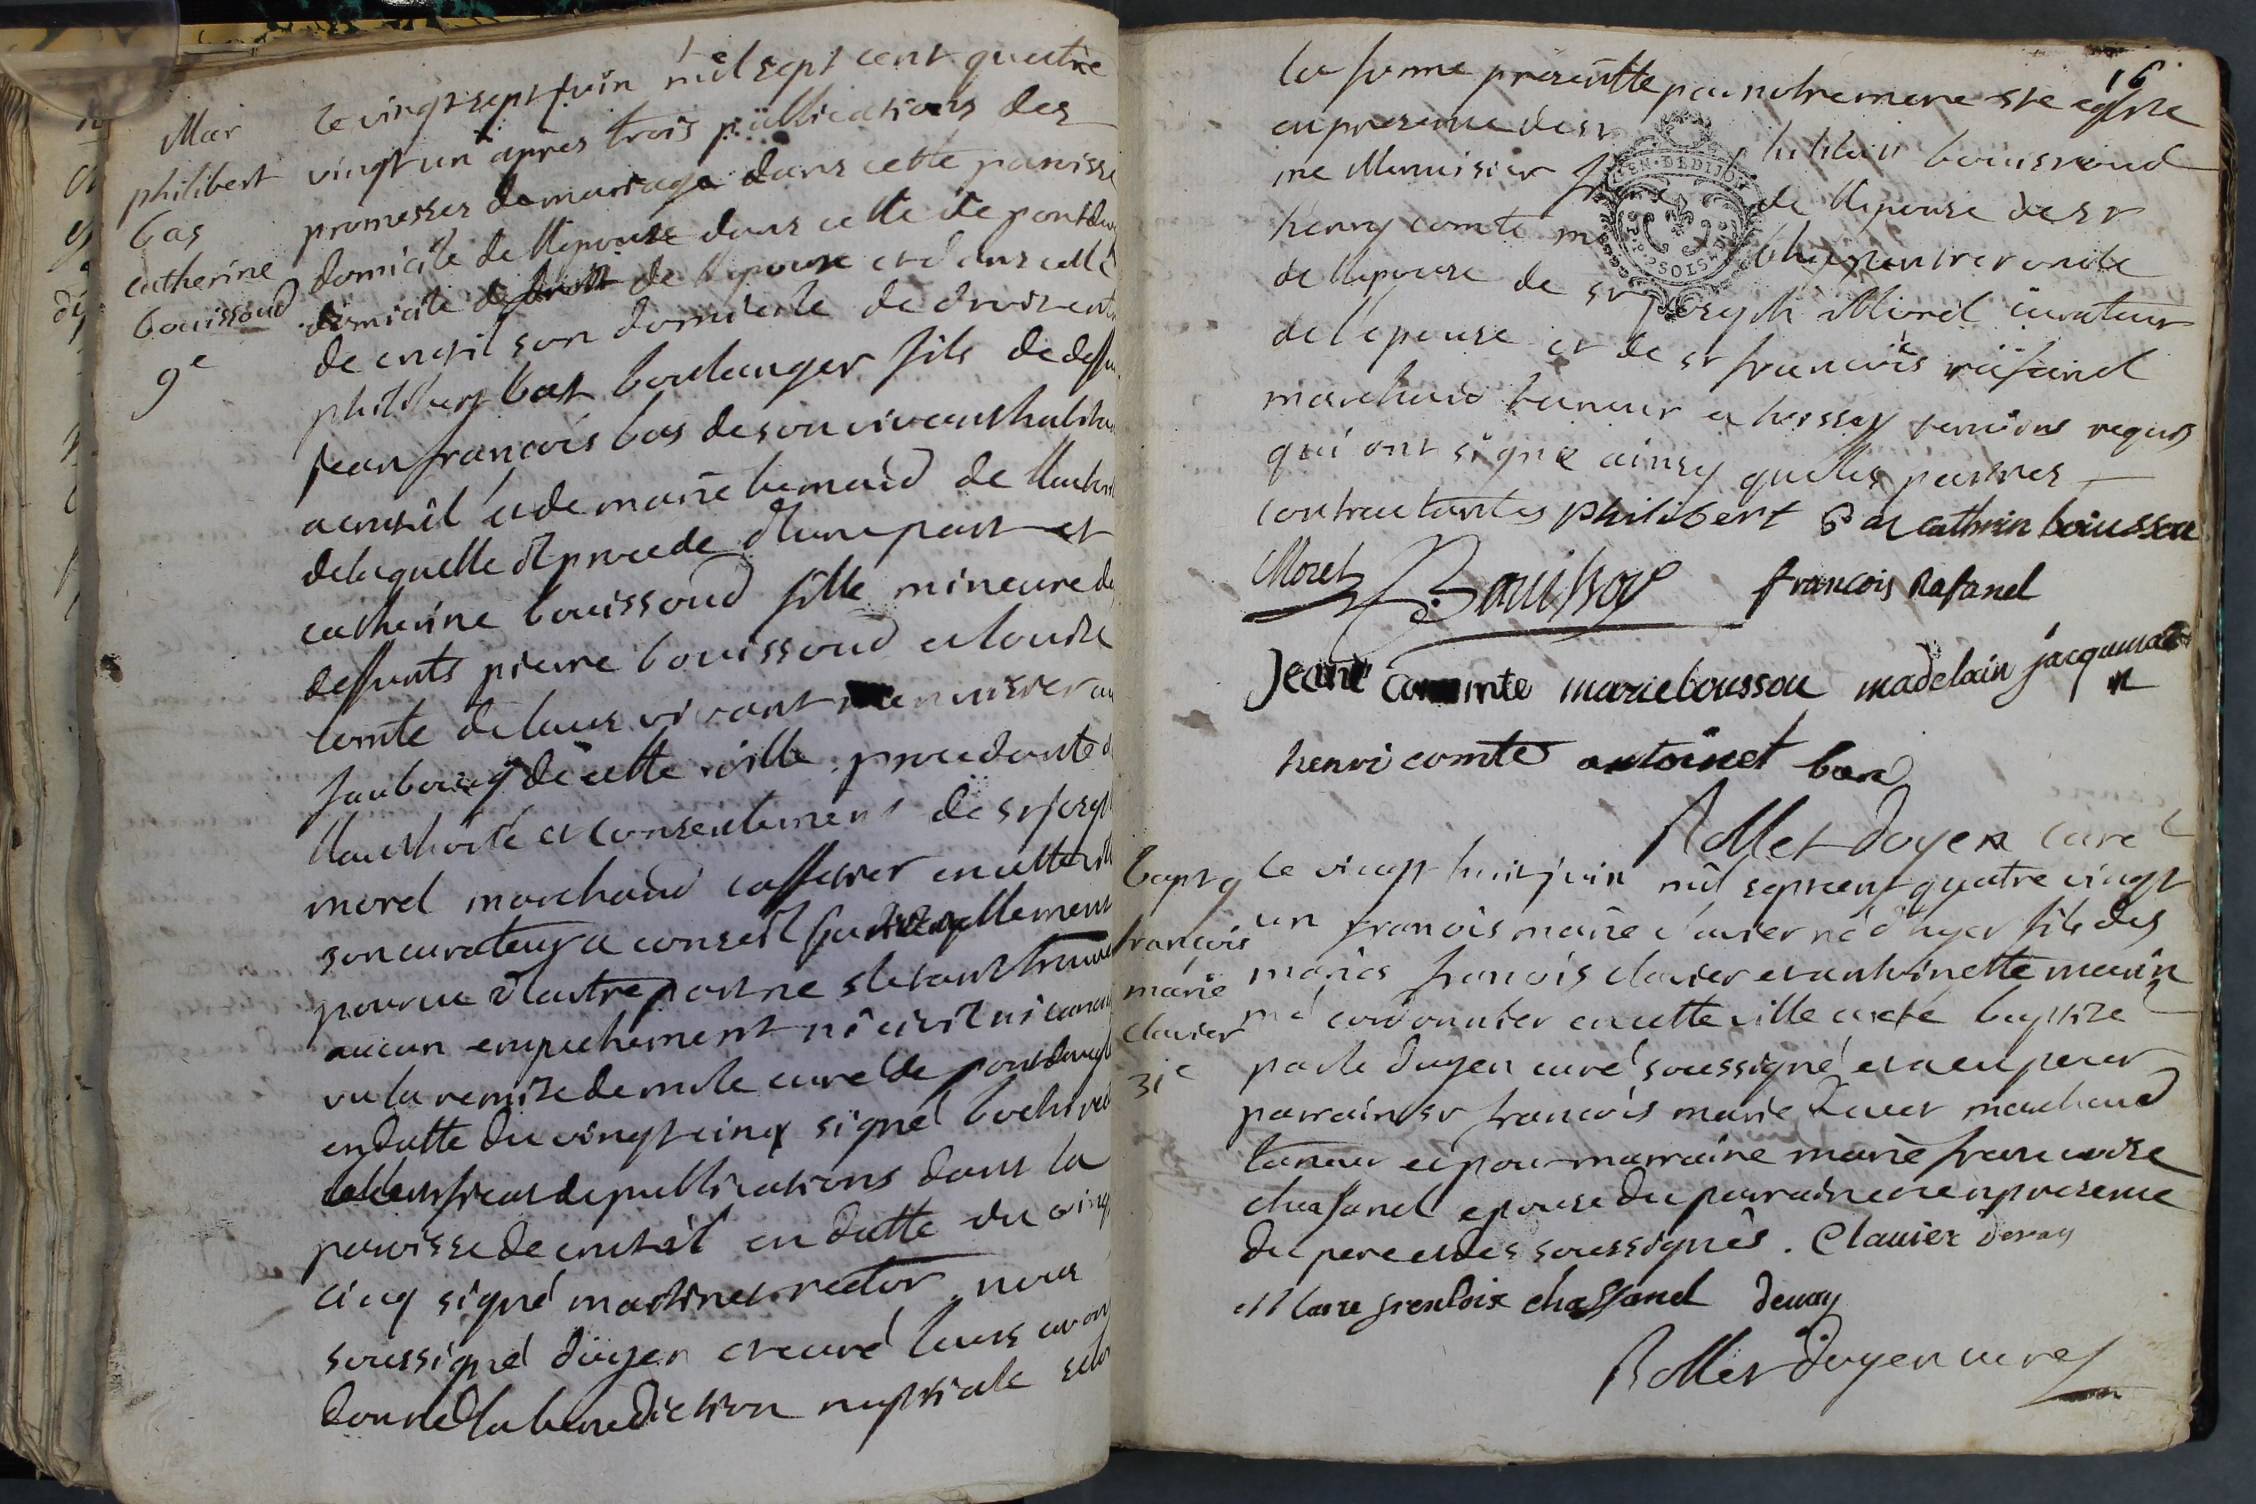 Mar
philibert
bas
catherine
bouissoud
9e
le vingt sept juin mil sept cent quatre
vingt un apres trois publications des
promesses de mariage dans cette paroisse
domicile de llepouse dans celle de pontdev
domicile de droit de llepouse et dans celle
de cuisil son domicile de droit ent
philibert bas boulanger fils de deffu
jean françois bas de son vivant habita
a cuisil et de marie de llauth
de laquelle il procede d'une part et
catherine bouissoud fille mineure de
deffunts pierre bouissoud et louise
comte de leur vivant menuisier au
faubourg de cette ville procedante d
llauthorité et consentement de sr josep
morel marchand caffetier en cette vill
son curateur a conseil judiciellement
pourvue d'autre part ne s'etant trouvé
aucun empechement ni civil ni canon
vu la remise de mr le curé de pontdevesl
en datte du vingt cinq signé
le certificat de publications dans la
paroisse de cuisil en datte du vingt
cinq signé martinet rector nous
soussigné doyen et curé leurs avon
donné la benediction nuptiale selon
16
la forme presçritte par notre mere ste eglise
en presence de sr philibert bouissoud
me Menuisier frere de llepouse de sr
henry comte me oncle
de llepouse de sr joseph Morel curateur
de l'epouse et de sr françois rafanel
marchand tanneur a temoins requis
qui ont signé ainsy que les parties
contractantes philibert Bas cathrin bouissou
Morel Bouissou françois Rafanel
Jeane Commte marie boussou madelain jacquuman
henri comte antoinet bas
Rollet doyen curé
bapt g
françois
marie
clavier
31e
le vingt huit juin mil sept cent quatre vingt
un françois marie clavier né d'hyer fils des
mariés françois clavier et antoinette morin
me cordonnier en cette ville a eté baptisé
par le doyen curé soussigné et a eu pour
parrain sr françois marie marchand
tanneur et pour marraine marie françoise
chassanel epouse du parrain et en presence
du pere et des soussignés . Clavier devay
Marre frenloise chassanel devay
Rollet doyen curé